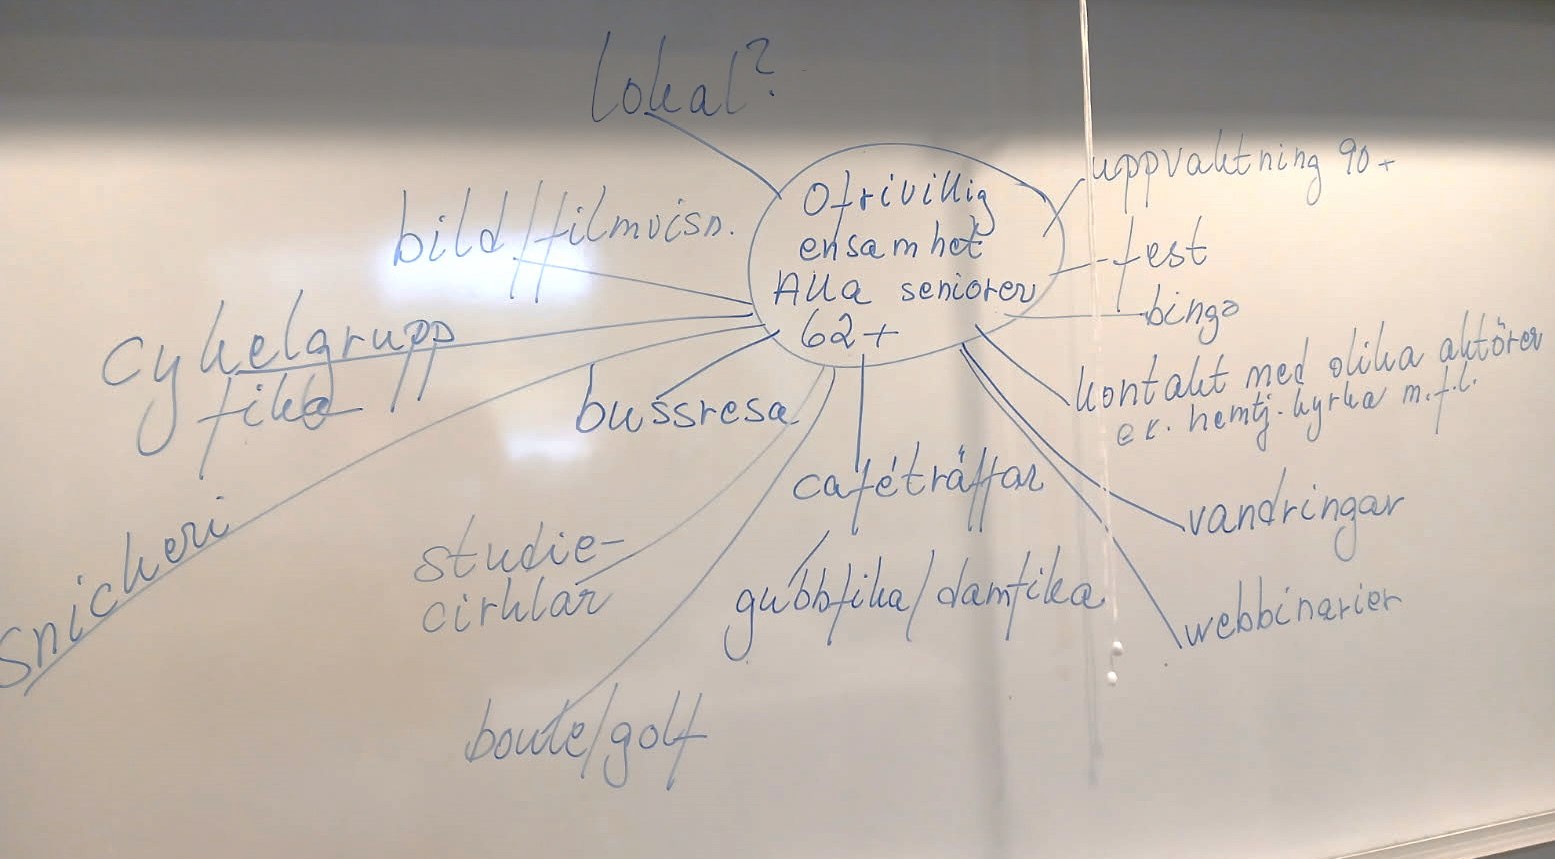 lokal?
Ofrivillig
ensamhet
Alla seniorer
62+
uppvaktning 90+
fest
bingo
kontakt med olika aktörer
ex. hemtj. kyrka m.f.l.
vandringar
webbinarier
caféträffar
gubbfika/damfika
bussresa
studie-
cirklar
boule/golf
bild/filmvisn.
cykelgrupp
fika
snickeri